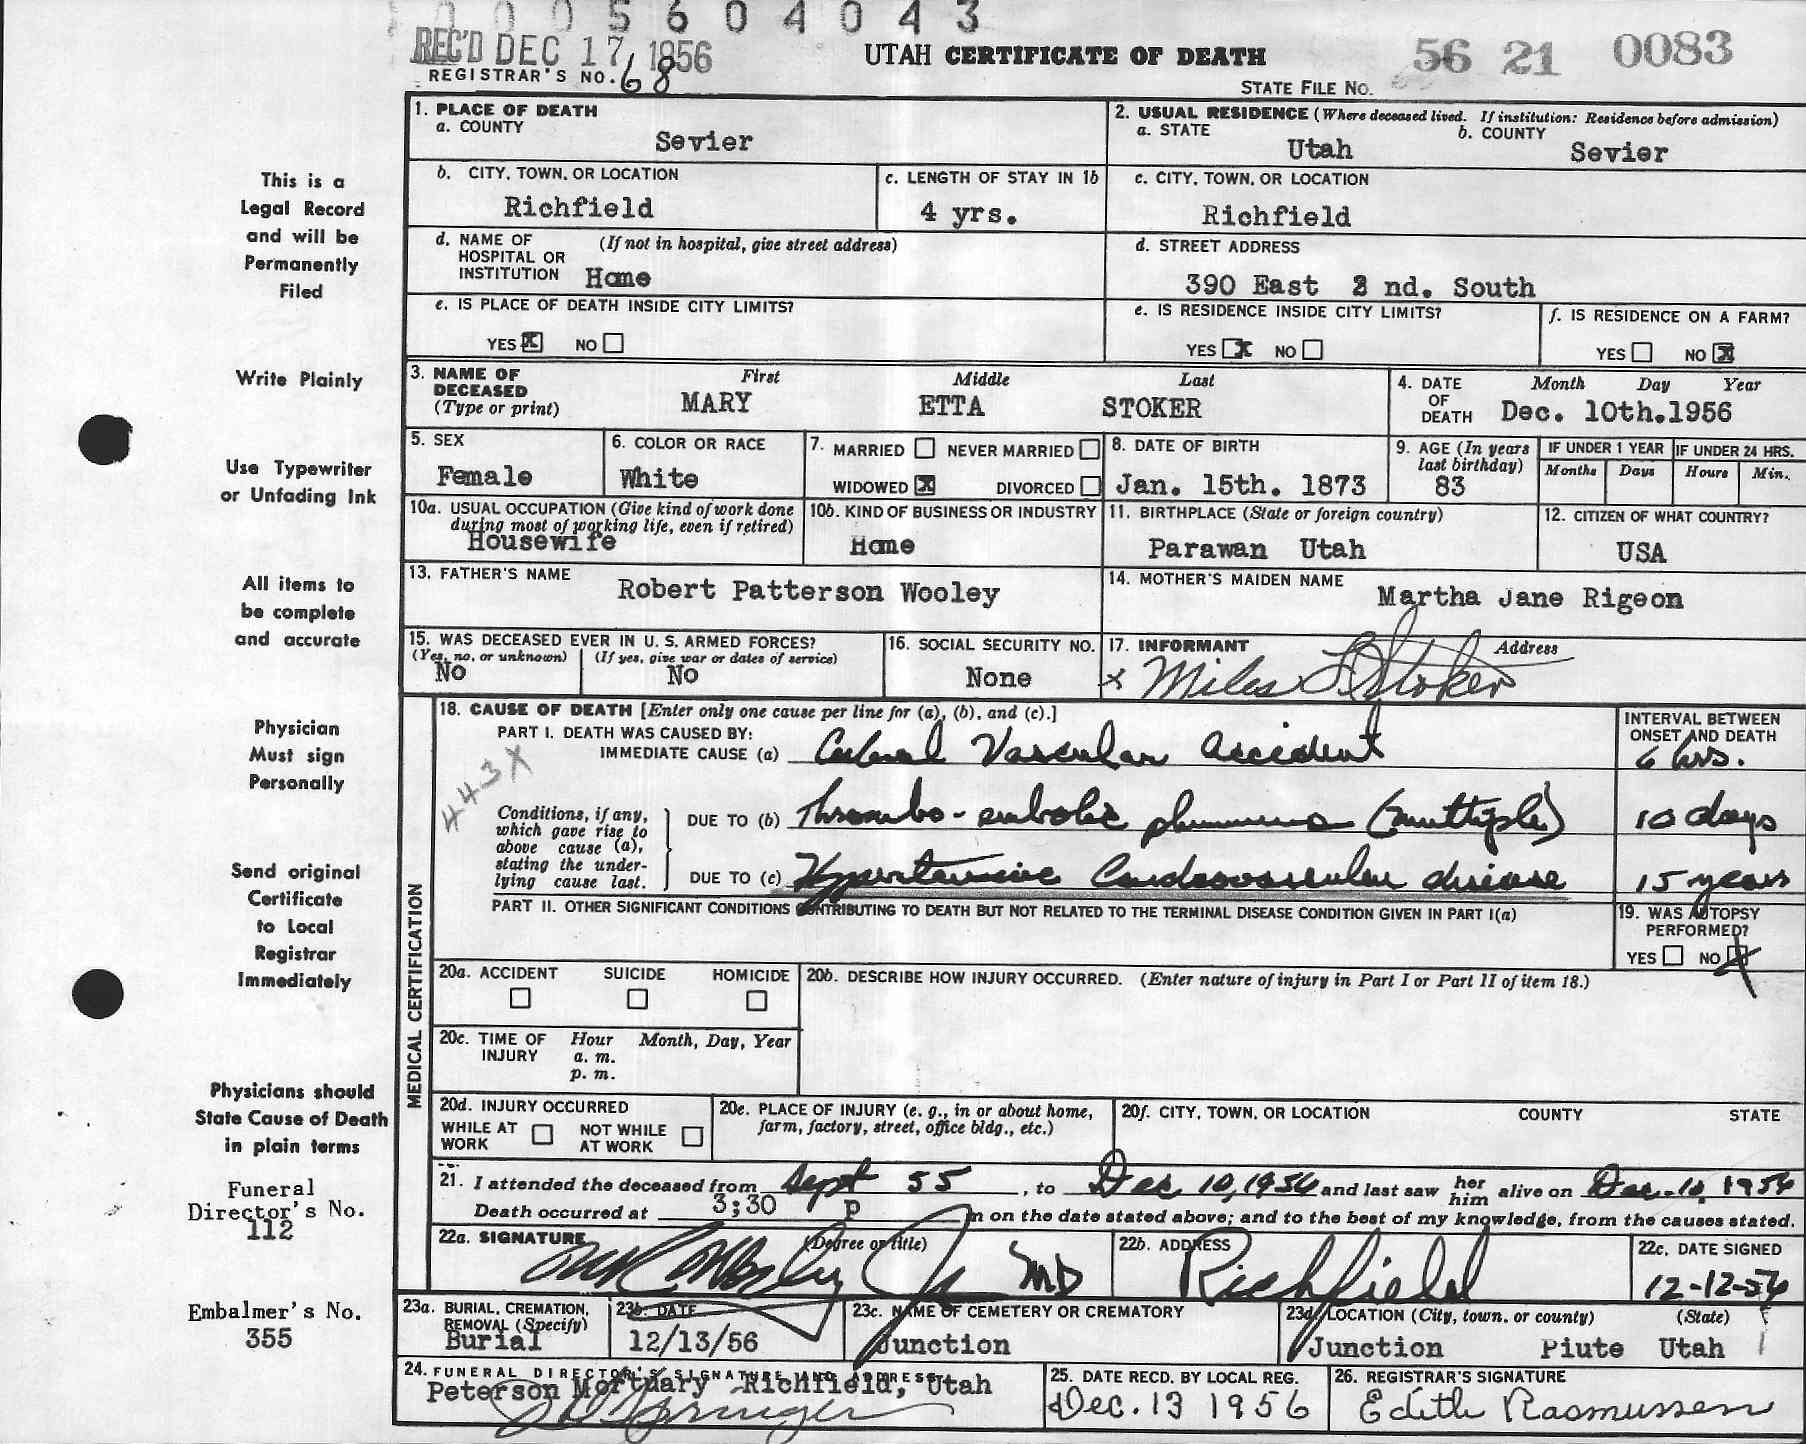 0005604043
REC'D DEC 17 1956
UTAH CERTIFICATE OF DEATH
56 21 0083
REGISTRAR'S NO. 68
STATE FILE NO.
This is a
Legal Record
and will be
Permanently
Filed
Write Plainly
Use Typewriter
or Unfading Ink
All items to
be complete
and accurate
Physician
Must sign
Personally
Send original
Certificate
to Local
Registrar
Immediately
Physicians should
State Cause of Death
in plain terms
Funeral
Director's No.
112
Embalmer's No.
355
1. PLACE OF DEATH
a. COUNTY
Sevier
2. USUAL RESIDENCE (Where deceased lived. If institution: Residence before admission)
a. STATE Utah b. COUNTY Sevier
b. CITY, TOWN, OR LOCATION
Richfield
c. LENGTH OF STAY IN 1b
4 yrs.
c. CITY, TOWN, OR LOCATION
Richfield
d. NAME OF HOSPITAL OR INSTITUTION (If not in hospital, give street address)
Home
d. STREET ADDRESS
390 East 2 nd. South
e. IS PLACE OF DEATH INSIDE CITY LIMITS?
YES X NO
e. IS RESIDENCE INSIDE CITY LIMITS?
YES X NO
f. IS RESIDENCE ON A FARM?
YES NO X
3. NAME OF DECEASED (Type or print)
First Middle Last
MARY ETTA STOKER
4. DATE OF DEATH
Month Day Year
Dec. 10th.1956
5. SEX
Female
6. COLOR OR RACE
White
7. MARRIED NEVER MARRIED
WIDOWED X DIVORCED
8. DATE OF BIRTH
Jan. 15th. 1873
9. AGE (In years last birthday)
83
IF UNDER 1 YEAR
Months Days
IF UNDER 24 HRS.
Hours Min.
10a. USUAL OCCUPATION (Give kind of work done during most of working life, even if retired)
Housewife
10b. KIND OF BUSINESS OR INDUSTRY
Home
11. BIRTHPLACE (State or foreign country)
Parawan Utah
12. CITIZEN OF WHAT COUNTRY?
USA
13. FATHER'S NAME
Robert Patterson Wooley
14. MOTHER'S MAIDEN NAME
Martha Jane Rigeon
15. WAS DECEASED EVER IN U. S. ARMED FORCES?
(Yes, no, or unknown) (If yes, give war or dates of service)
No No
16. SOCIAL SECURITY NO.
None
17. INFORMANT Address
x Miles L Stoker
MEDICAL CERTIFICATION
18. CAUSE OF DEATH [Enter only one cause per line for (a), (b), and (c).]
PART I. DEATH WAS CAUSED BY:
IMMEDIATE CAUSE (a) Cerebral Vascular accident
INTERVAL BETWEEN ONSET AND DEATH
6 hrs.
443X
Conditions, if any, which gave rise to above cause (a), stating the underlying cause last.
DUE TO (b) Thrombo-embolic (multiple) 10 days
DUE TO (c) Hypertensive Cardiovascular disease 15 years
PART II. OTHER SIGNIFICANT CONDITIONS CONTRIBUTING TO DEATH BUT NOT RELATED TO THE TERMINAL DISEASE CONDITION GIVEN IN PART I(a)
19. WAS AUTOPSY PERFORMED?
YES NO X
20a. ACCIDENT SUICIDE HOMICIDE
20b. DESCRIBE HOW INJURY OCCURRED. (Enter nature of injury in Part I or Part II of item 18.)
20c. TIME OF INJURY Hour Month, Day, Year
a. m.
p. m.
20d. INJURY OCCURRED
WHILE AT WORK NOT WHILE AT WORK
20e. PLACE OF INJURY (e. g., in or about home, farm, factory, street, office bldg., etc.)
20f. CITY, TOWN, OR LOCATION COUNTY STATE
21. I attended the deceased from Sept 55, to Dec 10, 1956 and last saw her him alive on Dec. 10, 1956
Death occurred at 3;30 p m on the date stated above; and to the best of my knowledge, from the causes stated.
22a. SIGNATURE (Degree or title)
Jr MD
22b. ADDRESS
Richfield
22c. DATE SIGNED
12-12-56
23a. BURIAL, CREMATION, REMOVAL (Specify)
Burial
23b. DATE
12/13/56
23c. NAME OF CEMETERY OR CREMATORY
Junction
23d. LOCATION (City, town, or county) (State)
Junction Piute Utah
24. FUNERAL DIRECTOR'S SIGNATURE AND ADDRESS
Peterson Mortuary Richfield, Utah
25. DATE RECD. BY LOCAL REG.
Dec. 13 1956
26. REGISTRAR'S SIGNATURE
Edith Rasmussen